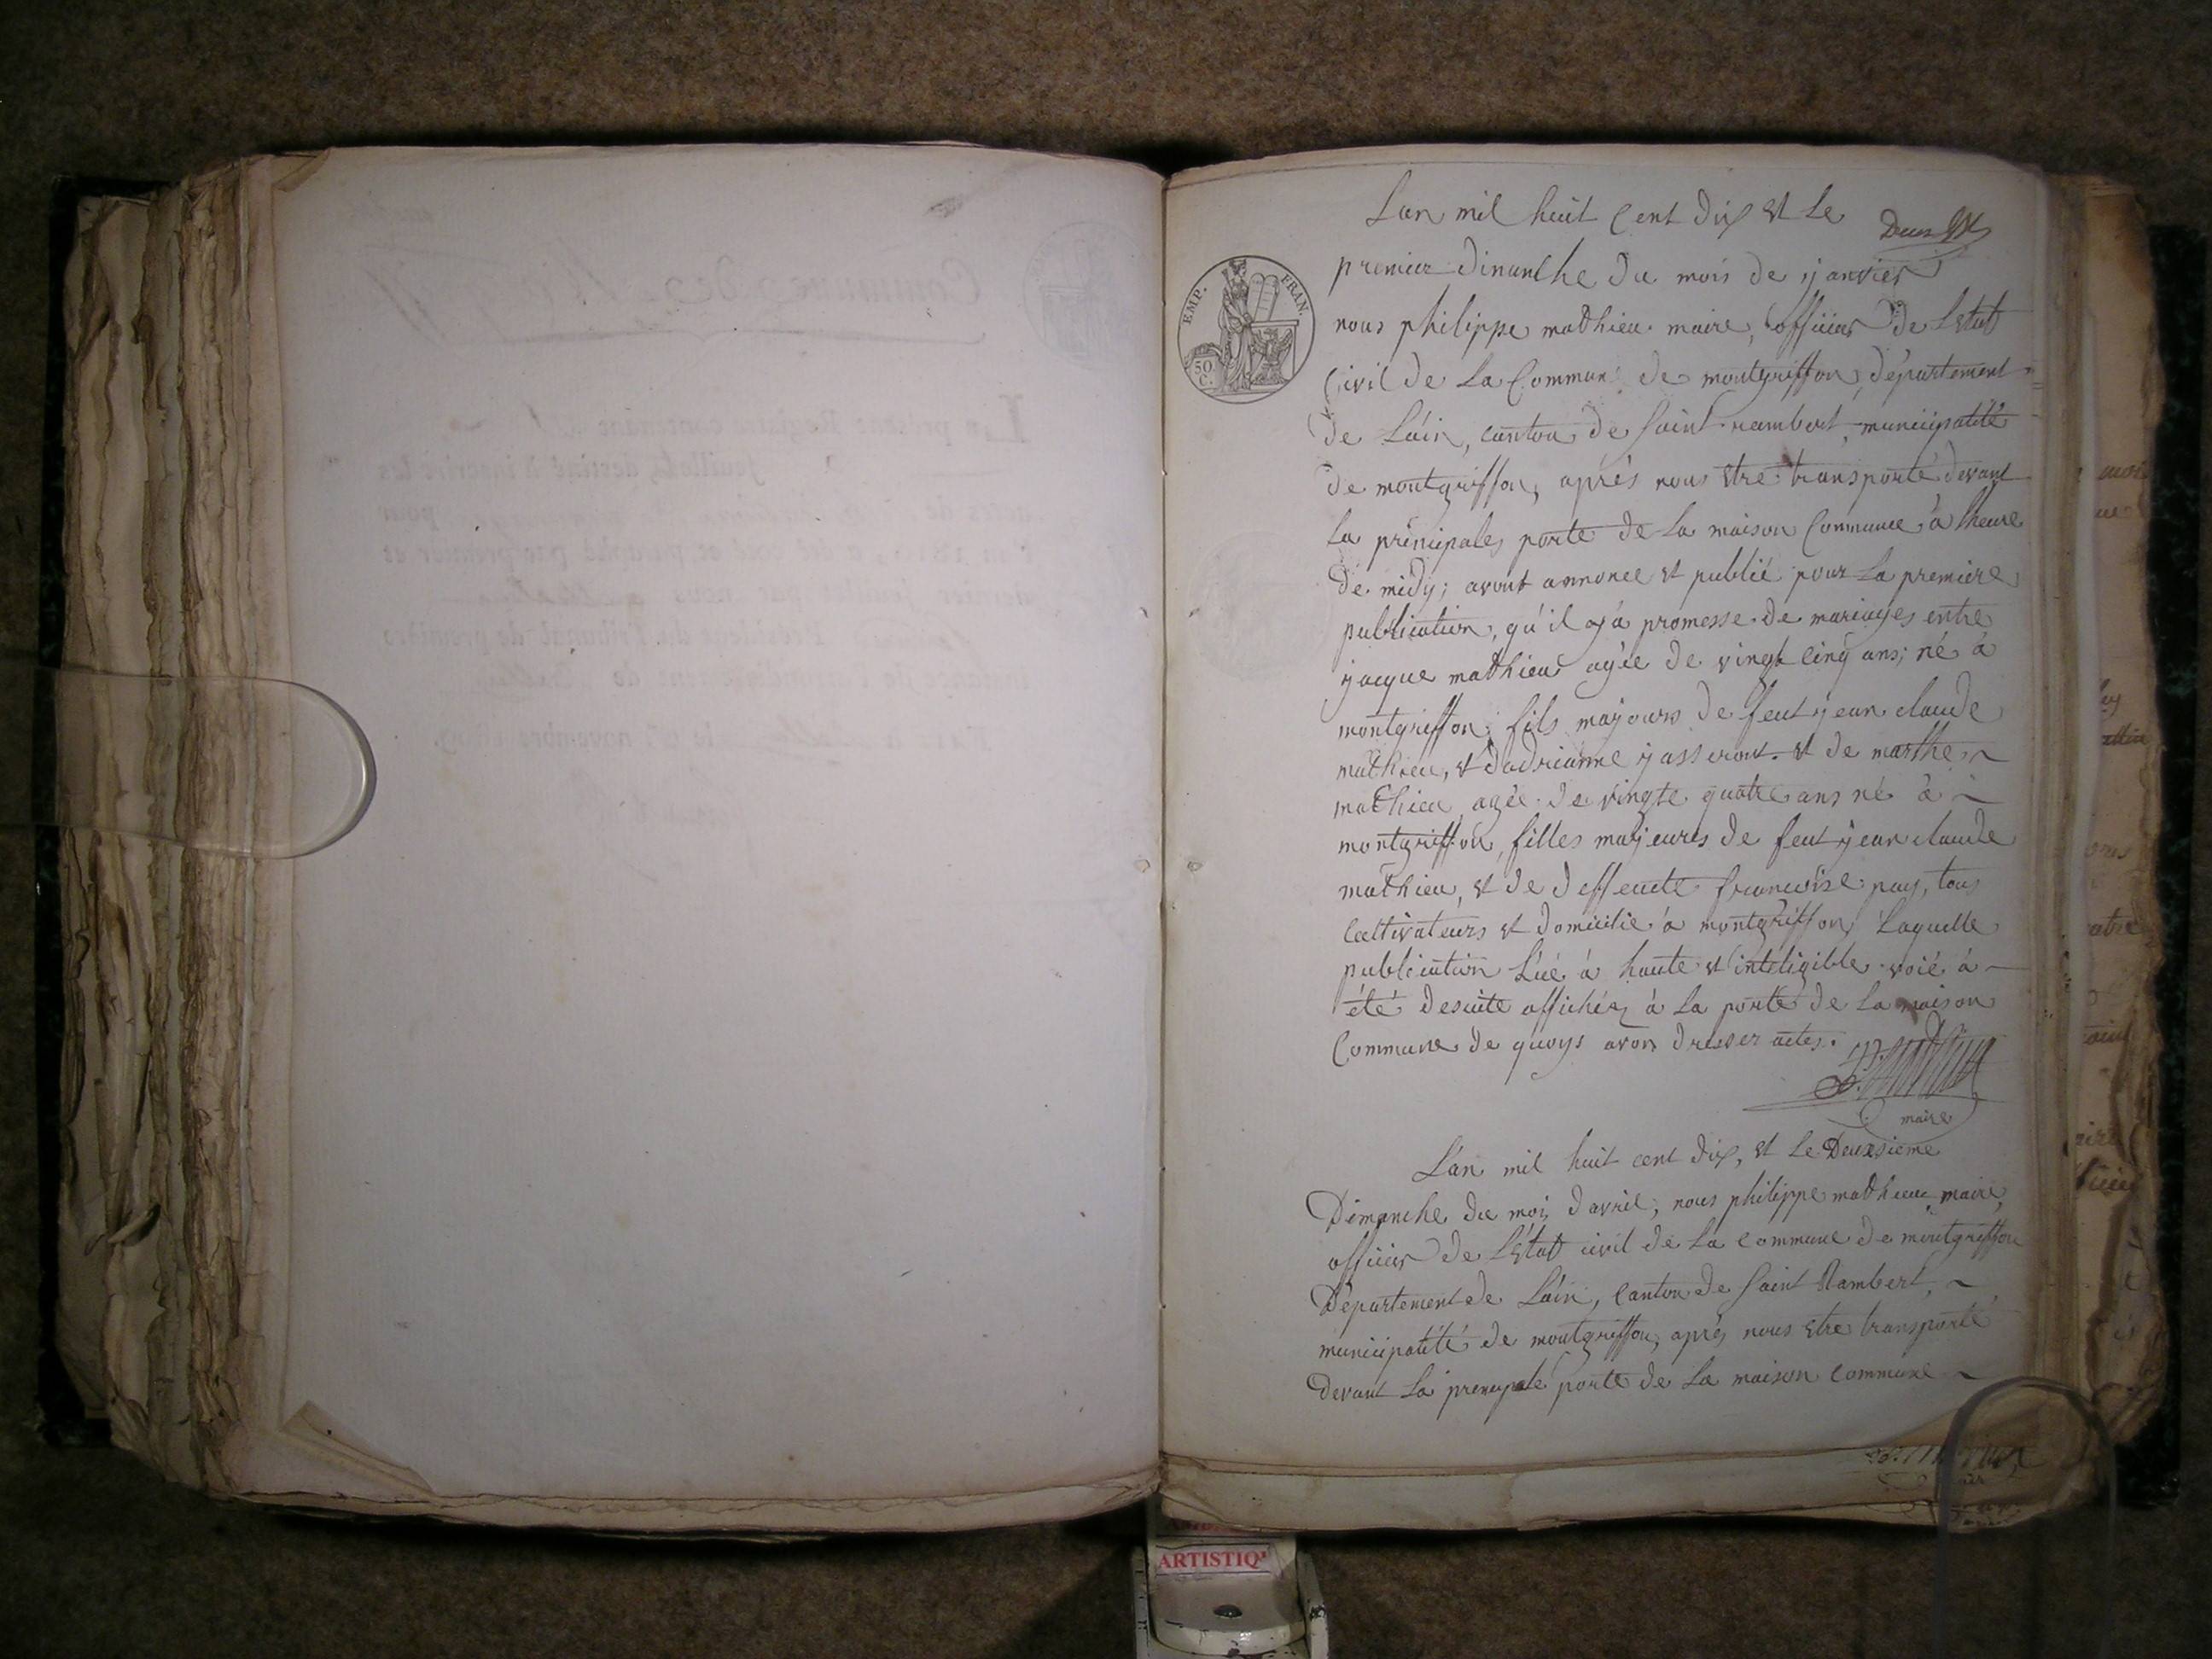 Lan mil huit Cent dix et Le
Deux
premier dimanche du mois de janvier
EMP. FRAN.
50 C.
nous philippe mathieu maire, officier de Letat
Civil de La Commune de montgriffon, département
de L'ain, canton de saint rambert, municipalité
de montgriffon, après nous etre transporté devant
La principales porte de La maison Commune à lheure
de midy; avont annoncé et publié pour La premiere
publication, qu'il y a promesse de mariages entre
jacque mathieu agée de vingt cinq ans; né à
montgriffon, fils majours de feut jean claude
mathieu, et dadrianne jasseront. et de marthe
mathieu agée de vingte quatre ans né à
montgriffon, filles majeures de feut jean claude
mathieu, et de deffeucte francoise pay, tous
Cultivateurs et domicilié à montgriffon Laquelle
publication Lué à haute et inteligible voié à
été desuite affichéz à La porte de La maison
Commune de quoys avons dresser actes.
P. Mathieu
maire
L'an mil huit cent dix, et Le Deuxsieme
Dimanche du mois d'avril; nous philippe mathieu maire,
officier de L'Etat civil de La commune de montgriffon
Département de L'ain, Canton de Saint Rambert,
municipalité de montgriffon, après nous etre transporté
devant La principale porte de La maison commune
ARTISTIQ